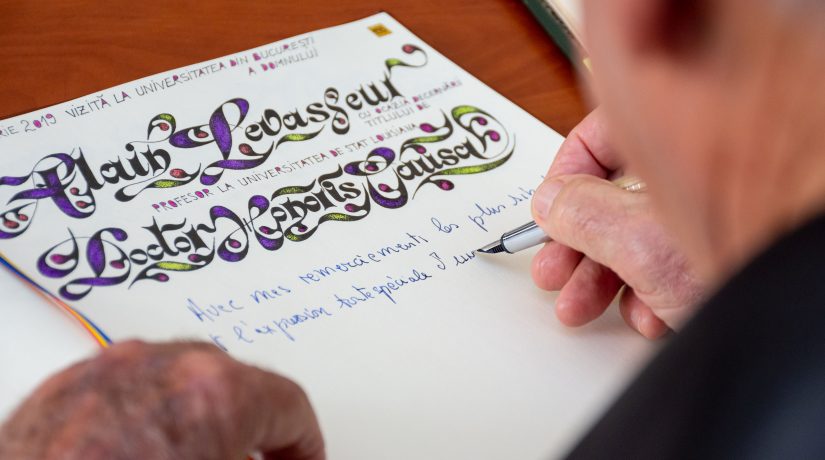 RIE 2019 VIZITĂ LA UNIVERSITATEA DIN BUCUREȘTI
A DOMNULUI
Alain Levasseur
CU OCAZIA DECERNĂRII
TITLULUI DE
PROFESOR LA UNIVERSITATEA DE STAT LOUISIANA
Doctor Honoris Causa
Avec mes remerciements les plus
l'expression toute spéciale d'une